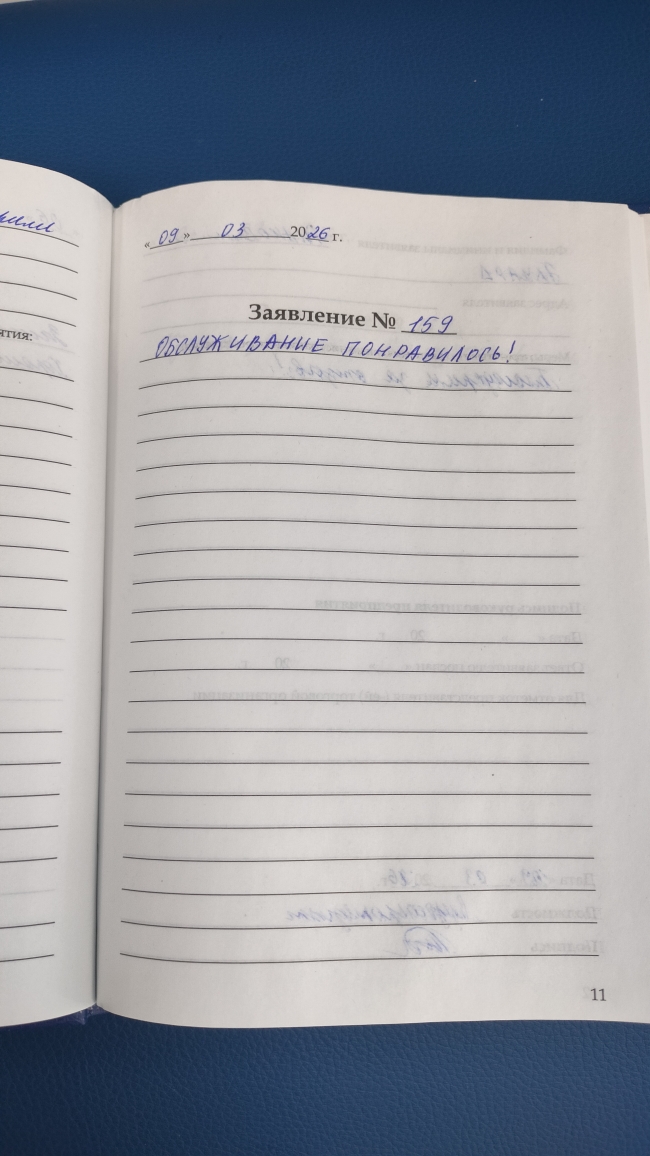 «09» 03 2026 г.
Заявление № 159
ОБСЛУЖИВАНИЕ ПОНРАВИЛОСЬ!
ятия:
11